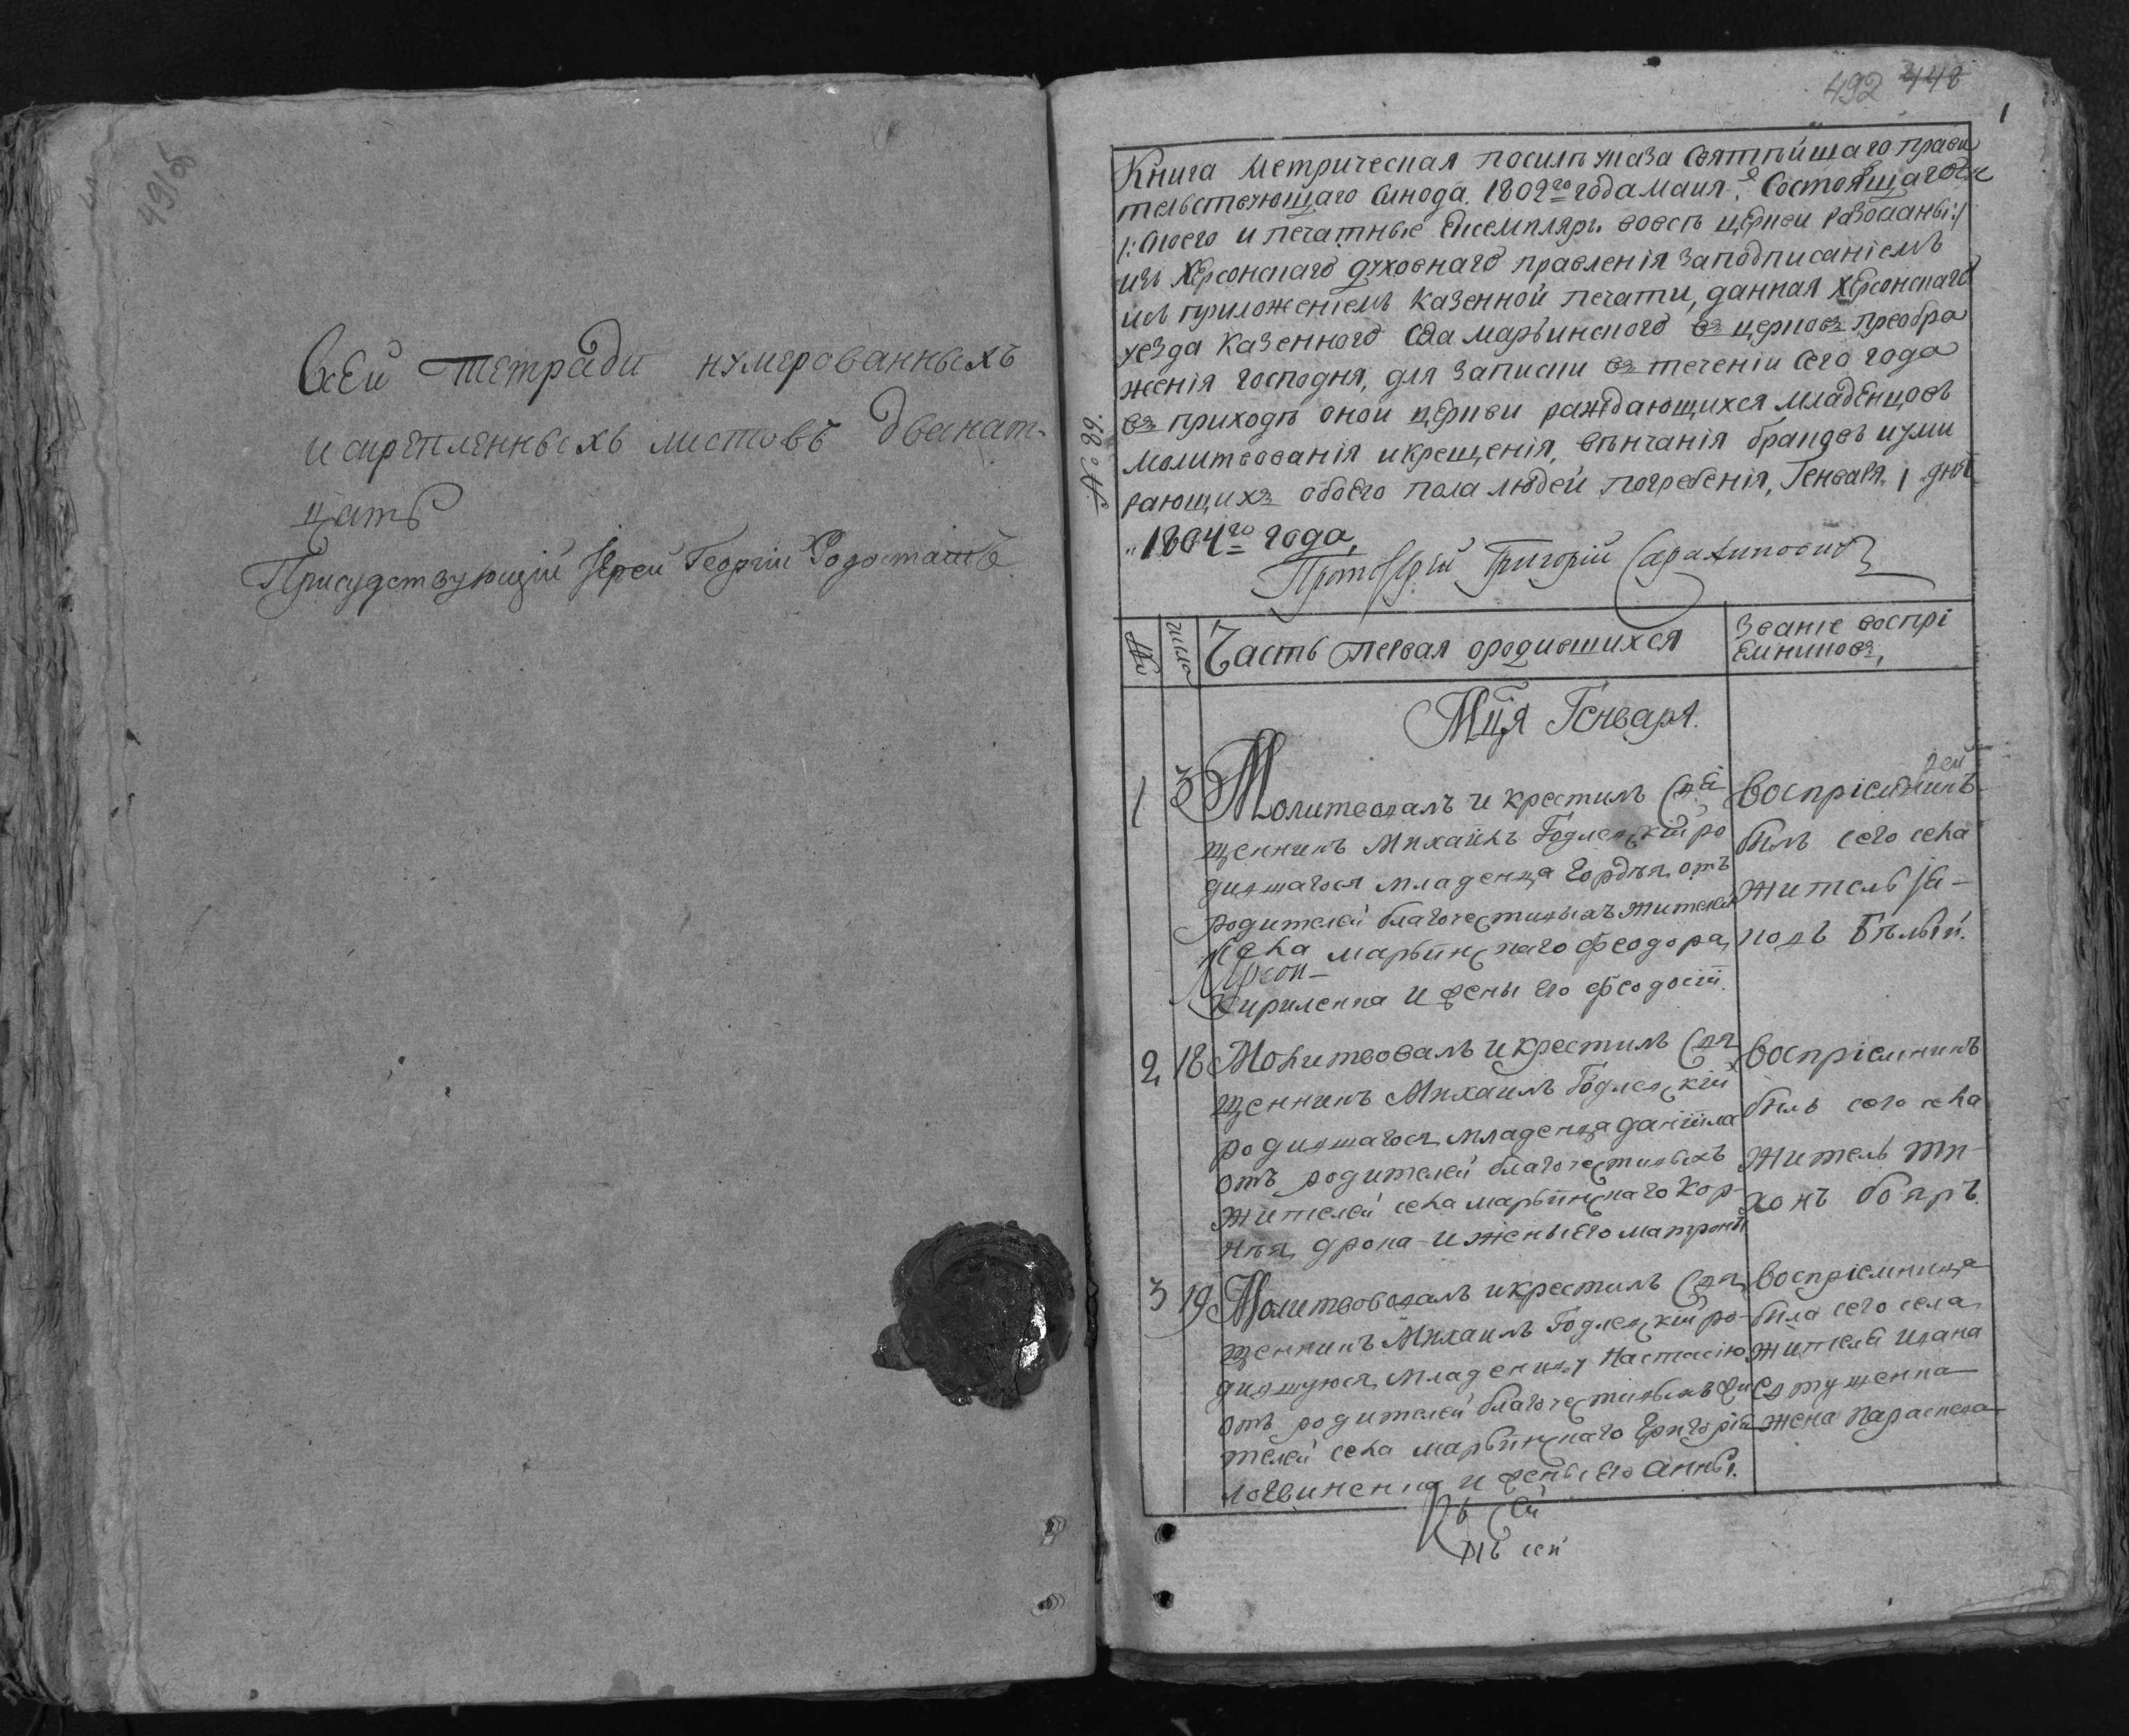 491 об
Всей тетради нумерованныхъ
и скрепленныхъ листовъ дванат-
цать
Присудствующій Іерей Георгій
492 448
1
Книга метрическая посилѣ указа Святѣйшаго прави
тельствующаго Синода 1802го года маия Состоявщагося
/: Съоего и печатные ексемпляры вовсѣ церкви разосланы :/
изъ Херсонскаго духовнаго правленія заподписаніемъ
исъ приложеніемъ казенной печати, данная херсонскаго
уезда казенного села марьинского въ церковъ преобра
женія господня, для записки въ теченіи сего года
въ приходѣ оной церкви раждающихся младенцовъ
молитвованія икрещенія, вѣнчанія браковъ иуми
рающихъ обоего пола людей погребенія, Генваря, 1 дня
"1804го года,
Протоіерій Григорій
№ 68.
№ число Часть первая ородившихся Званіе воспрі
емниковъ,
Мця Генваря.
1 3 Молитвовалъ и крестилъ Свя
щенникъ Михаилъ Годлевскій ро
дившагося младенца Гордѣя, отъ
родителей благочестивыхъ жителей
села марьинскаго феодора
Кириленка и жены его феодосіи.
воспріемникъ
билъ сего села
житель Іа-
ковъ Бѣлый.
2 18 Молитвовалъ икрестилъ Свя
щенникъ Михаилъ Годлевскій
родившагося младенца даніила
отъ родителей благочестивыхъ
жителей села марьинскаго Кор-
нѣя дрока и жены его матроны
воспріемникъ
билъ сего села
житель ти-
хонъ бояръ.
3 19 Молитвововалъ икрестилъ Свя
щенникъ Михаилъ Годлевскій ро-
дившуюся младеницу Настасію
отъ родителей благочестивыхъ жи
телей села марьинскаго Григорія
логвиненка и жены его анны.
воспріемница
била сего села
жителя ивана
жена параскева
Къ сей
къ сей